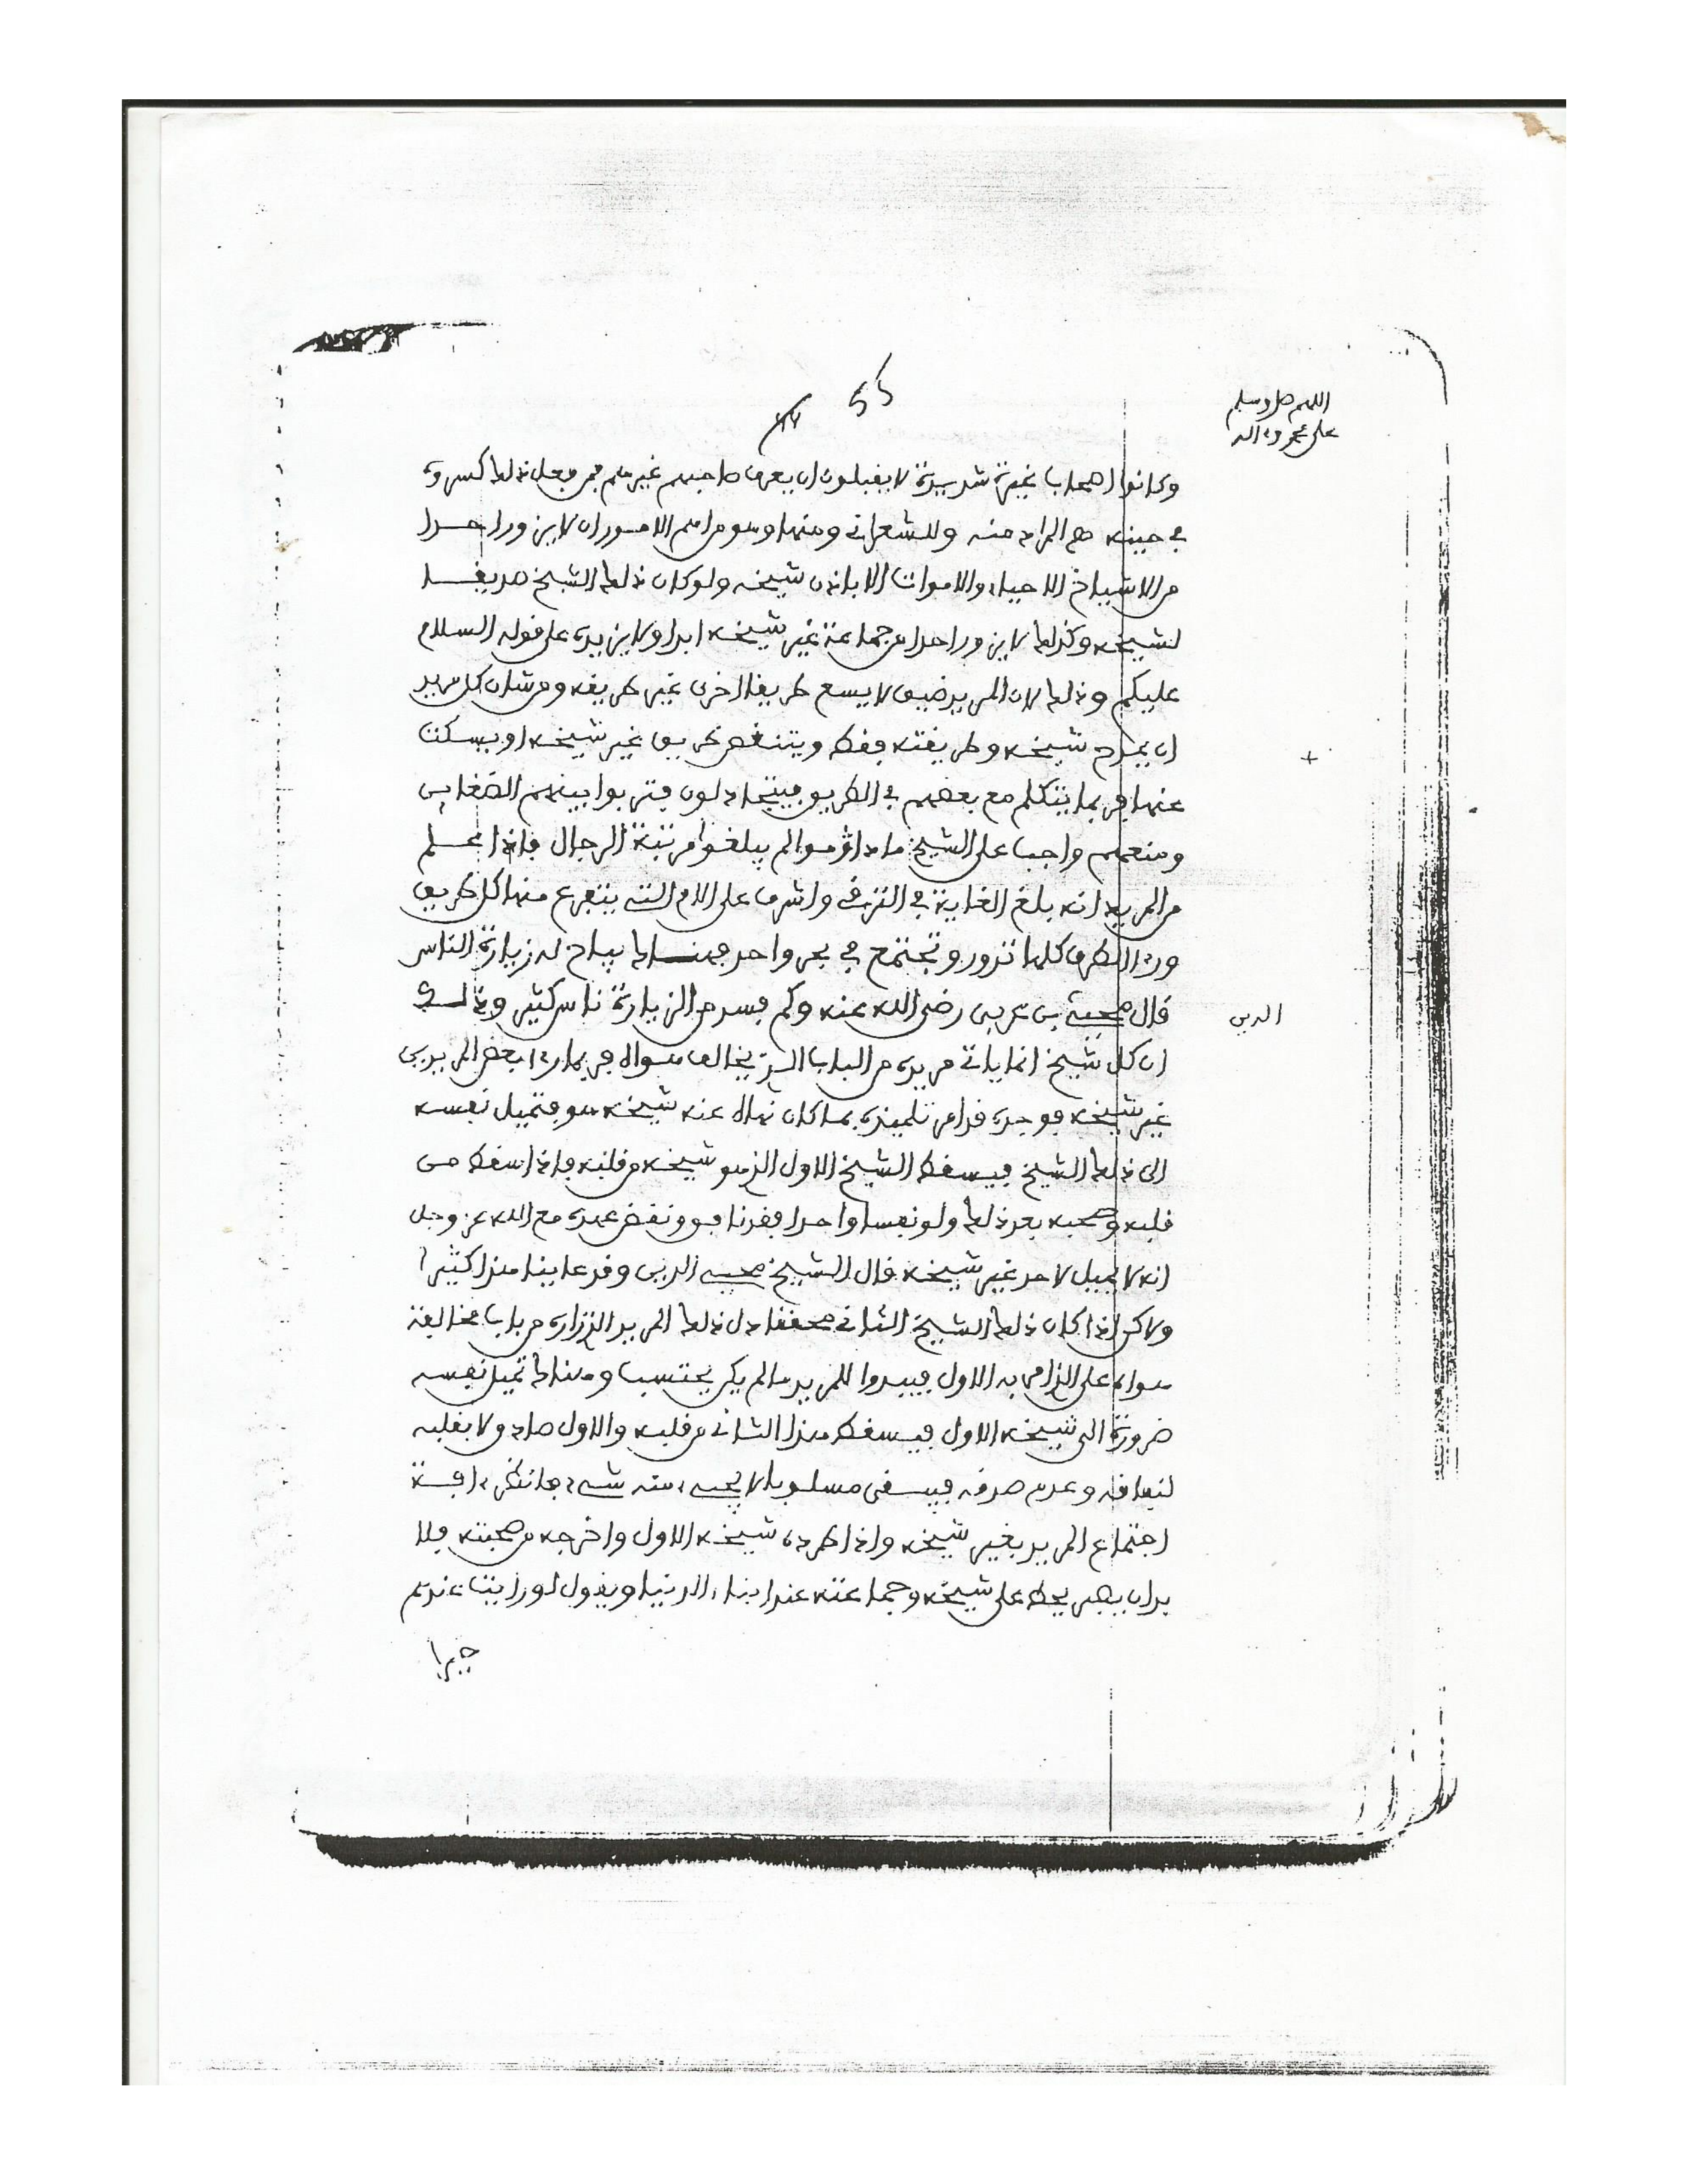 اللهم صل وسلم
على محمد وءاله
55
وكانوا اصحاب غيرة شديدة لا يقبلون ان يعرف صاحبهم غيرهم فمن فعل ذلك كسروه
في حينه صح المراد منه وللشعراني ومنها وهو من اهم الامور ان لا يزور احدا
من الاشياخ الاحياء والاموات الا باذن شيخه ولو كان ذلك الشيخ صديقا
لشيخه وكذلك لا يزور احدا من جماعة غير شيخه ابدا ولا يزيده على قوله السلام
عليكم وذلك لان المريد ضيق لا يسع طريقا اخرى غير طريقه ومن شان كل مريد
ان يمدح شيخه وطريقته فقط ويتنقص طريق غير شيخه او يسكت
عنها فربما يتكلم مع بعضهم في الطريق فيتجادلون فتربوا بينهم الضغاين
ومنعهم واجب على الشيخ ما داموا لم يبلغوا مرتبة الرجال فاذا علم
من المريد انه بلغ الغاية في الترقي واشرف على الام التي يتفرع منها كل طريق
ورءا الطرق كلها تدور وتجتمع في بحر واحد فهناك يباح له زيارة الناس
قال محيي بن عربي رضي الله عنه وكم فسد من الزيارة ناس كثير وذلك
الدين
ان كل شيخ انما ياتي مريده من الباب الذي يخالف هواه فربما رءا بعض المريدين
غير شيخه فوجده قد امر تلميذه بما كان نهاه عنه شيخه هو فتميل نفسه
الى ذلك الشيخ فيسقط الشيخ الاول الذي هو شيخه من قلبه فاذا سقط من
قلبه وصحبه بعد ذلك ولو نفسا واحدا فقد نافق ونقض عهده مع الله عز وجل
انه لا يميل لاحد غير شيخه قال الشيخ محيي الدين وقد عاينا هذا كثيرا
ولاكن اذا كان ذلك الشيخ الثاني محققا دل ذلك المريد الزاره من باب مخالفة
هواه على الزام به الاول فيبدوا للمريد ما لم يكن يحتسب وهناك تميل نفسه
ضرورة الى شيخه الاول فيسقط هذا الثاني من قلبه والاول صاد ولا بقلبه
لنفاقه وعدم صدقه فيبقى مسلوبا لا يجيء منه شيء فانظر ءافة
اجتماع المريد بغير شيخه واذا طرده شيخه الاول واخرجه من صحبته فلا
بد ان يصير يحط على شيخه وجماعته عند ابناء الدنيا ويقول لو رايت عندهم
خيرا